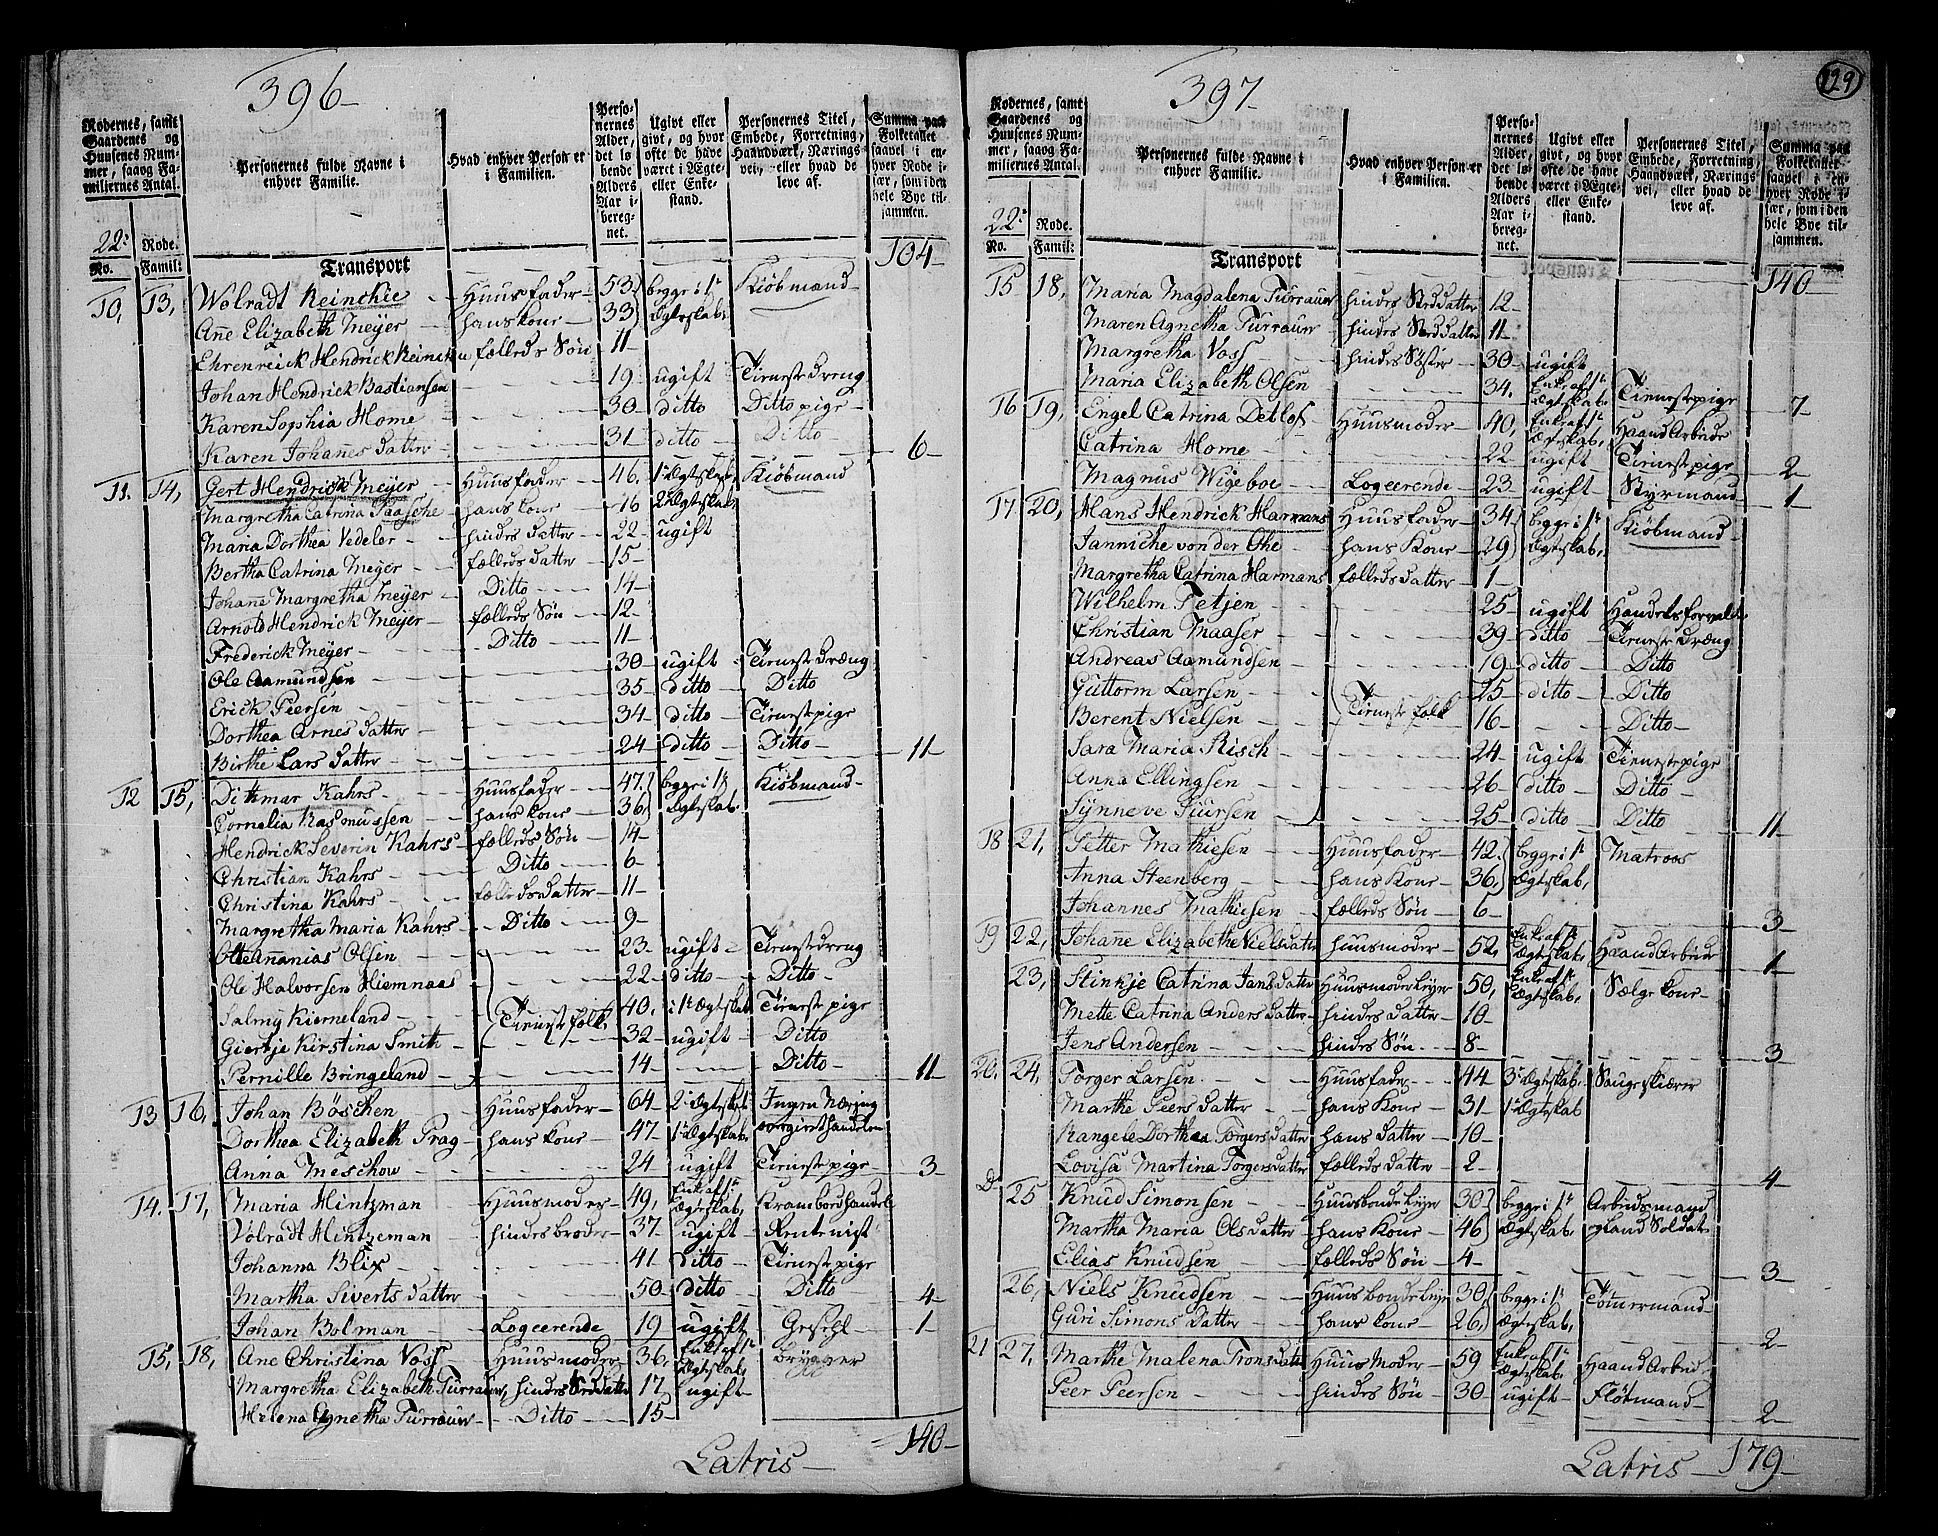 396
Rodernes, samt Gaardenes og Huusenes Nummer, saaog Familiernes Antal.
Personernes fulde Navne i enhver Familie.
Hvad enhver Person er i Familien.
Personernes Alder, det løbende Alders Aar iberegnet.
Ugivt eller givt, og hvor ofte de have været i Ægte- eller Enkestand.
Personernes Titel, Embede, Forretning, Haandværk, Næringsvei, eller hvad de leve af.
Summa paa Folketallet saavel i enhver Rode især, som i den hele Bye tilsammen.
22: Rode.
No. Famil:
Transport 104
10, 13, Wolradt Reinchie Huusfader 53 begge i 1te Kiöbmand
Ane Elizabeth Meÿer hans kone 33 Ægteskab
Ehrenreick Hendrick Reincke fælleds Sön 11
Johan Hendrick Bastiansen 19 ugift Tieneste dreng
Karen Sophia Home 30 ditto Ditto pige
Karen Johannes datter 31 ditto Ditto 6
11. 14, Gert Hendrick Meÿer Huusfader 46. 1 Ægteskab Kiöbmand
Margretha Catrina Paasche hans kone 16 2 Ægteskab
Maria Dorthea Vedeler hindes datter 22 ugift
Bertha Catrina Meÿer fælleds datter 15
Johane Margretha Meÿer Ditto 14
Arnold Hendrick Meÿer fælleds Sön 12
Frederick Meÿer Ditto 11
Ole Aamundsen 30 ugift Tieneste dræng
Erick Peersen 35 ditto Ditto
Dorthea Arnes datter 34 ditto Tieneste pige
Birthe Lars datter 24 ditto Ditto 11
12 15, Ditkmar Kahrs Huusfader 47 begge i 1te Kiöbmand
Cornelia Rasmussen hans kone 36 Ægteskab
Hendrick Severin Kahrs fælleds Sön 14
Christian Kahrs Ditto 6
Christina Kahrs fælleds datter 11
Margretha Maria Kahrs Ditto 9
Otte Ananias Olsen 23 ugift Tieneste dreng
Ole Halvorsen Hiemnaas 22 ditto Ditto
Salmÿ Kierneland Tieneste folk 40, i 1te Ægteskab Tieneste pige
Giertje Kirstina Smith 32 ugift Ditto
Pernille Bringeland 14 Ditto 11
13 16, Johan Böschen Huusfader 64 2 Ægteskab Ingen Næring
Dorthea Elizabeth Prag hans kone 47 1te Ægteskab, handelen
Anna Meschow 24 ugift Tieneste pige 3
14. 17, Maria Hintzman Huusmoder 49, Enke af 1te Ægteskab, Krambodhandel
Volradt Hintzeman hindes broder 37 ugift Rentenist
Johanna Blix 41 ditto Tieneste pige
Martha Siverts datter 50 ditto Ditto 4
Johan Bolman Logeerende 19 ugift Gesehl 1
15, 18, Ane Christina Voss Huusmoder 36, Enke af 1te Ægteskab, brÿgger
Margretha Elizabeth Turrauw, hindes Steddatter 17 ugift
Helena Agnetha Turrauw Ditto 15
Latris 140
129
397
Rodernes, samt Gaardenes og Huusenes Nummer, saaog Familiernes Antal.
Personernes fulde Navne i enhver Familie.
Hvad enhver Person er i Familien.
Personernes Alder, det løbende Alders Aar iberegnet.
Ugivt eller givt, og hvor ofte de have været i Ægte- eller Enkestand.
Personernes Titel, Embede, Forretning, Haandværk, Næringsvei, eller hvad de leve af.
Summa paa Folketallet saavel i enhver Rode især, som i den hele Bye tilsammen.
22: Rode.
No. Famil:
Transport 140
15 18, Maria Magdalena Turrauw hindes Steddatter 12
Maren Agnetha Turrauw hindes Steddatter 11
Margretha Voss hindes Söster 30 ugift
Maria Elizabeth Olsen 34. Enke af 1te Ægteskab Tieneste pige 7
16 19, Engel Catrina Detlof Huusmoder 40, Enke af 1te Ægteskab, Haand Arbeide
Catrina Home 22 ugift Tieneste pige 2
Magnus Wigeboe Logeerende 23 ugift Styrmand 1
17 20, Hans Hendrick Harmans Huusfader 34 begge i 1te Kiöbmand
Janniche von der Ohe hans Kone 29 Ægteskab,
Margretha Catrina Harmans fælleds datter 1
Wilhelm Tetjen 25 ugift Handels forvalter
Christian Maaser 39 ditto Tieneste dræng
Andreas Aamundsen 19 ditto Ditto
Guttorm Larsen 25 ditto Ditto
Berent Nielsen Tieneste folk 16 Ditto
Sara Maria Risch 24 ugift Tieneste pige
Anna Ellingsen 26 ditto Ditto
Sÿnneve Siursen 25 ditto Ditto 11
18 21, Petter Mathiesen Huusfader 42 begge i 1te Matroos
Anna Steenberg hans Kone 36, Ægteskab,
Johannes Mathiesen fælleds Sön 6 3
19 22, Johane Elizabethe Nielsdatter huusmoder 52, Enke af 1te Ægteskab, Haand Arbeide 1
23, Stinkje Catrina Jans datter Huusmoder Leÿer 50, Enke af 1te Ægteskab, Sælge kone
Mette Catrina Anders datter hindes datter 10
Jens Andersen hindes Sön 8 3
20, 24, Torger Larsen Huusfader 44 3 Ægteskab, Saugeskiærer
Marthe Peers datter hans Kone 31 1te Ægteskab
Rangele Dorthea Torgers datter hans datter 10
Lovisa Martina Torgersdatter fælleds datter 2 4
Do 25 Knud Simonsen Huusbonde Leÿer 30 begge i 1te Arbeidsmand
Martha Maria Olsdatter hans Kone 46 Ægteskab, og land Soldat
Elias Knudsen fælleds Sön 4 3
26, Niels Knudsen Huusbonde Leÿe 30, begge i 1te Tömmermand
Guri Simons datter hans kone 26, Ægteskab, 2
21 27, Marthe Malena Tronsdatter Huus Moder 59 Enke af 1te Ægteskab, Haand Arbeid
Peer Peersen hindes Sön 30 ugift Flötmand 2
Latris 179